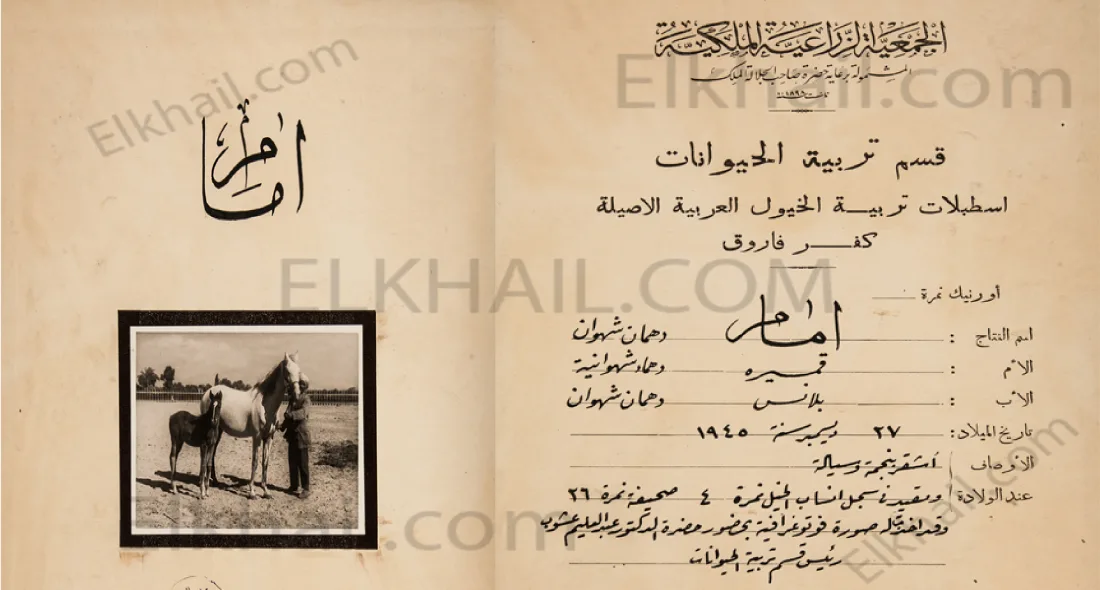 امام
الجمعية الزراعية الملكية
المشمولة برعاية حضرة صاحب الجلالة الملك
تأسست سنة ١٨٩٨
قسم تربية الحيوانات
اسطبلات تربية الخيول العربية الاصيلة
كفر فاروق
أورنيك نمرة
اسم النتاج : امام دهمان شهوان
الأم : قميره دهمه شهوانية
الأب : بلانس دهمان شهوان
تاريخ الميلاد : ٢٧ ديسمبر سنة ١٩٤٥
الأوصاف أشقر بنجمة وسيالة
عند الولادة ومقيد فى سجل انساب الخيل نمرة ٤ صحيفة نمرة ٢٦
وقد اخذت له صورة فوتوغرافية بحضور حضرة الدكتور عبد العليم عشوب
رئيس قسم تربية الحيوانات
Elkhail.com
Elkhail.com
ELKHAIL.COM
Elkhail.com
Elkhail.com